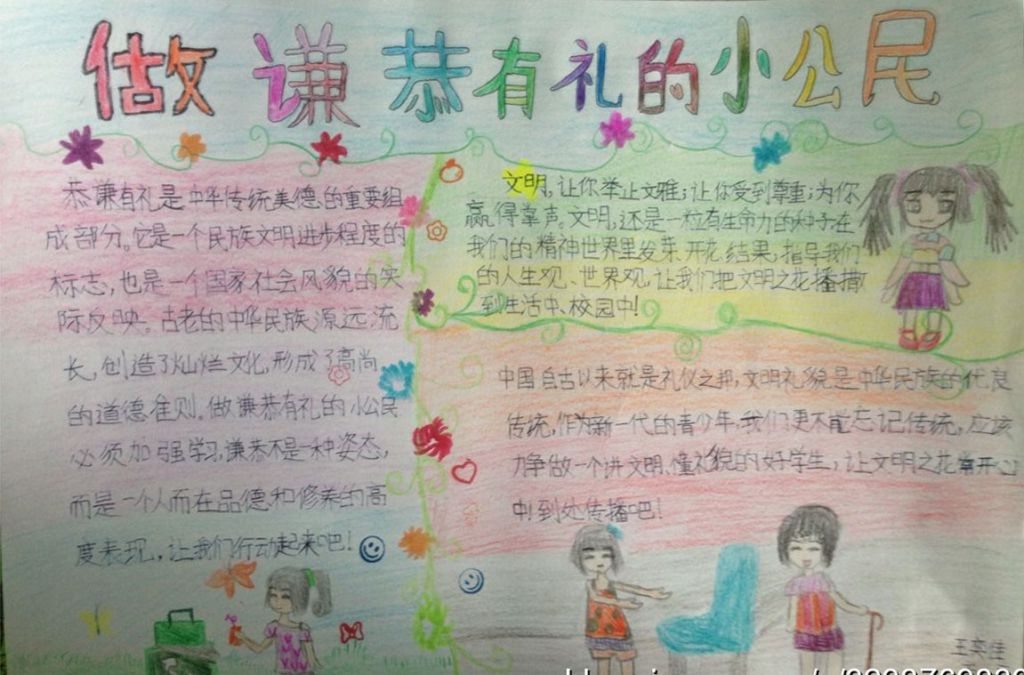 做谦恭有礼的小公民
恭谦有礼是中华传统美德的重要组
成部分。它是一个民族文明进步程度的
标志,也是一个国家社会风貌的实
际反映。古老的中华民族源远流
长,创造了灿烂文化,形成了高尚
的道德准则。做谦恭有礼的小公民
必须加强学习,谦恭不是一种姿态,
而是一个人而在品德和修养的高
度表现,让我们行动起来吧!
文明,让你举止文雅;让你受到尊重;为你
赢得掌声。文明,还是一粒有生命力的种子在
我们的精神世界里发芽、开花、结果;指导我们
的人生观、世界观,让我们把文明之花播撒
到生活中、校园中!
中国自古以来就是礼仪之邦,文明礼貌是中华民族的优良
传统,作为新一代的青少年,我们更不能忘记传统,应该
力争做一个讲文明、懂礼貌的好学生,让文明之花常开心
中!到处传播吧!